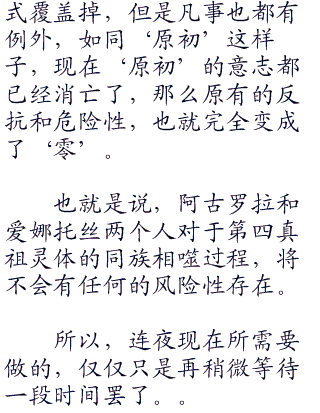 式覆盖掉，但是凡事也都有
例外，如同‘原初’这样
子，现在‘原初’的意志都
已经消亡了，那么原有的反
抗和危险性，也就完全变成
了‘零’。
也就是说，阿古罗拉和
爱娜托丝两个人对于第四真
祖灵体的同族相噬过程，将
不会有任何的风险性存在。
所以，连夜现在所需要
做的，仅仅只是再稍微等待
一段时间罢了。。